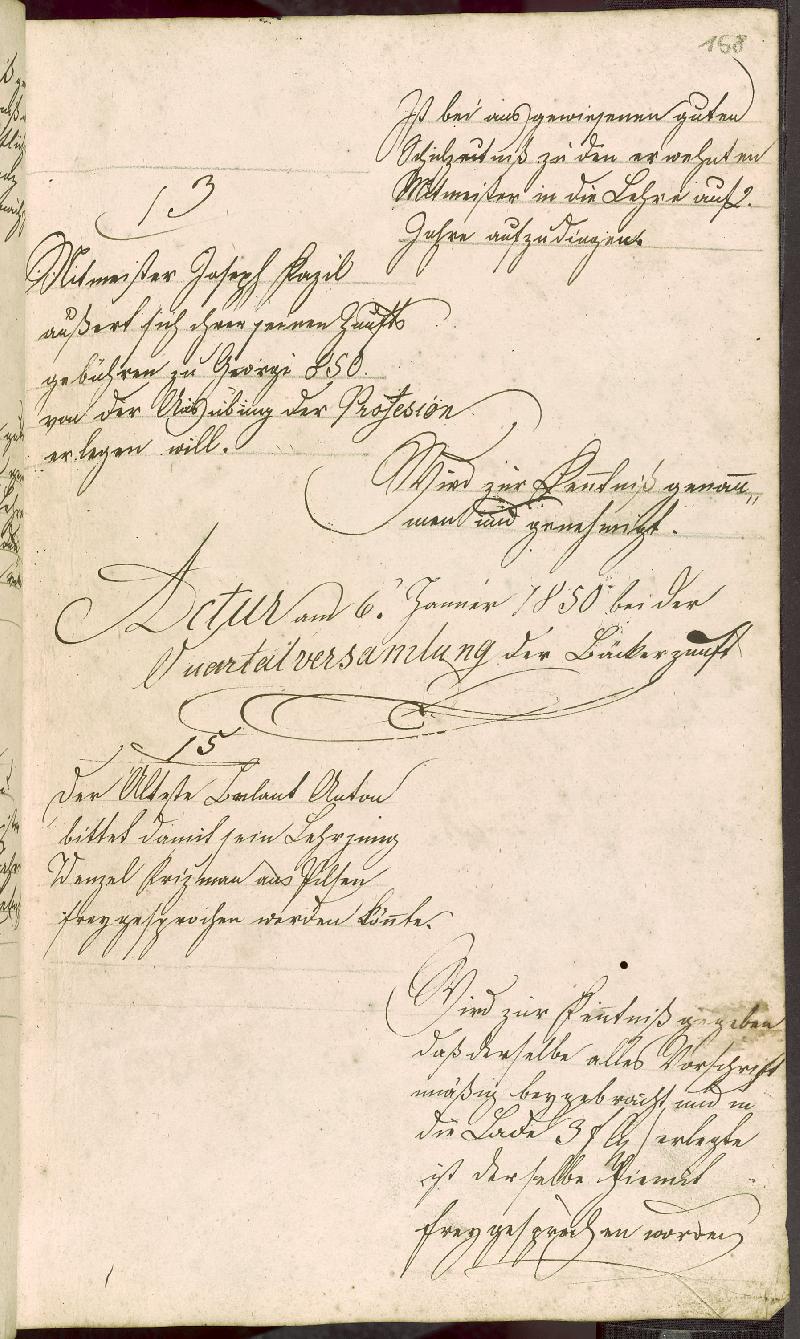 168
Ist bei ausgewiesenen guten
Schulzeutniß zu den erwehnten
Mitmeister in die Lehre auf 2.
Jahre aufzudingen.
13
Mitmeister Joseph Pazil
äußert sich Zunfts
gebühren zu Georgi 850.
von der Ausübung der Profesion
erlegen will.
Wird zur Kentniß genom̄„
men und genehmigt.
Actum am 6. Jänner 1850 bei der
Quartalversamlung der Bäckerzunft
15
Der Älteste Anton
bittet damit sein Lehrjung
Wenzel Krizman aus Pilsen
freygesprochen werden kön̄te.
Wird zur Ken̄tniß gegeben
daß derselbe alles Vorschrift
mäßig beygebracht und in
die Lade 3 f erlegte
ist derselbe hiemit
freygesprochen worden